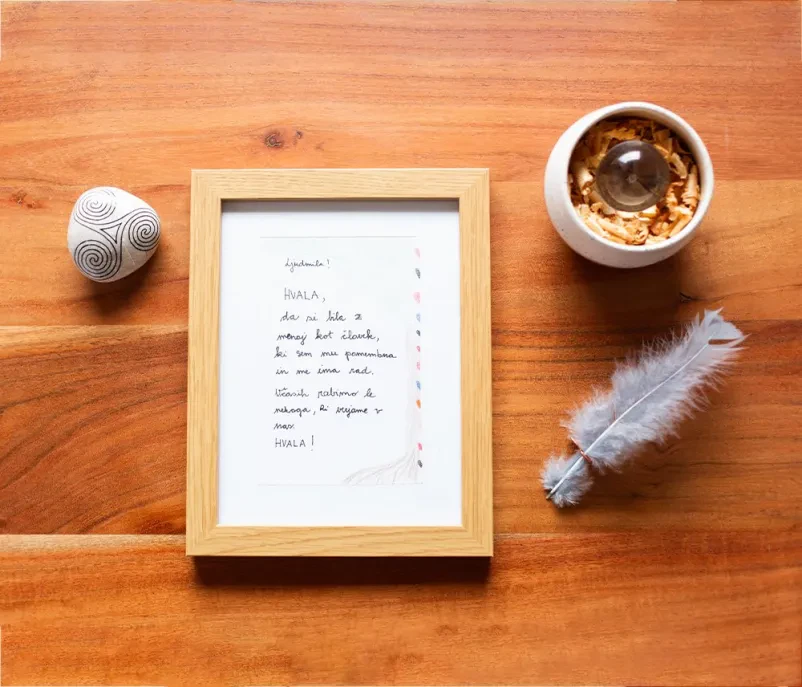 Ljudmila!
HVALA,
da si bila z
menoj kot človek,
ki sem mu pomembna
in me ima rad.
Včasih rabimo le
nekoga, ki verjame v
nas.
HVALA!